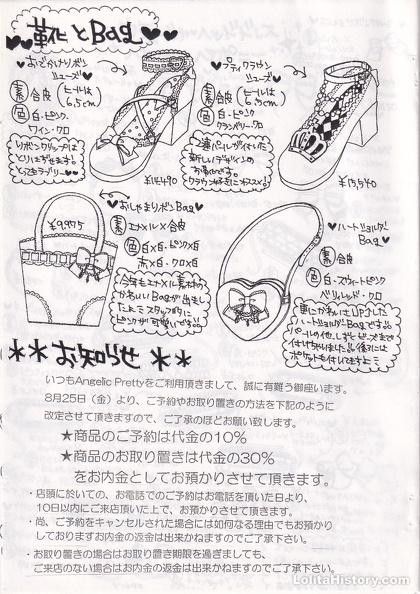 靴とBag
おでかけリボン
シューズ
素 合皮
(ヒールは
6.5cm)
色 白・ピンク
ワイン・クロ
リボンクリップは
とりはずせます。
とってもラブリー
¥14,490
プティクラウン
シューズ
素 合皮
(ヒールは
6.5cm)
色 白・ピンク
クランベリー・クロ
新しいデザインの
お靴です。
クラウン好きにオススメ
¥15,540
おしゃまリボンBag
¥9,975
素 エナメル×合皮
色 白×白・ピンク×白
赤×白・クロ×白
今年もエナメル素材の
かわいいBagが出まし
たよ スタッフ的に
ピンクが可愛いです
ハートショルダー
Bag
素 合皮
色 白・スウィートピンク
ベリィレッド・クロ
更にかわいさUPした
ハートショルダーBagです
パールの他、しずくビーズまで
付けちゃいました 後ろには
ポケットも付いてます
お知らせ
いつもAngelic Prettyをご利用頂きまして、誠に有難う御座います。
8月25日(金)より、ご予約やお取り置きの方法を下記のように
改定させて頂きますので、ご了承のほどお願い致します。
★商品のご予約は代金の10%
★商品のお取り置きは代金の30%
をお内金としてお預かりさせて頂きます。
・店頭に於いての、お電話でのご予約はお電話を頂いた日より、
10日以内にご来店頂いた上で、お預かりさせて頂きます。
・尚、ご予約をキャンセルされた場合には如何なる理由でもお預かり
しておりますお内金の返金は出来かねますのでご了承下さい。
・お取り置きの場合はお取り置き期限を過ぎましても、
ご来店のない場合はお内金の返金は出来かねますのでご了承下さい。
LolitaHistory.com